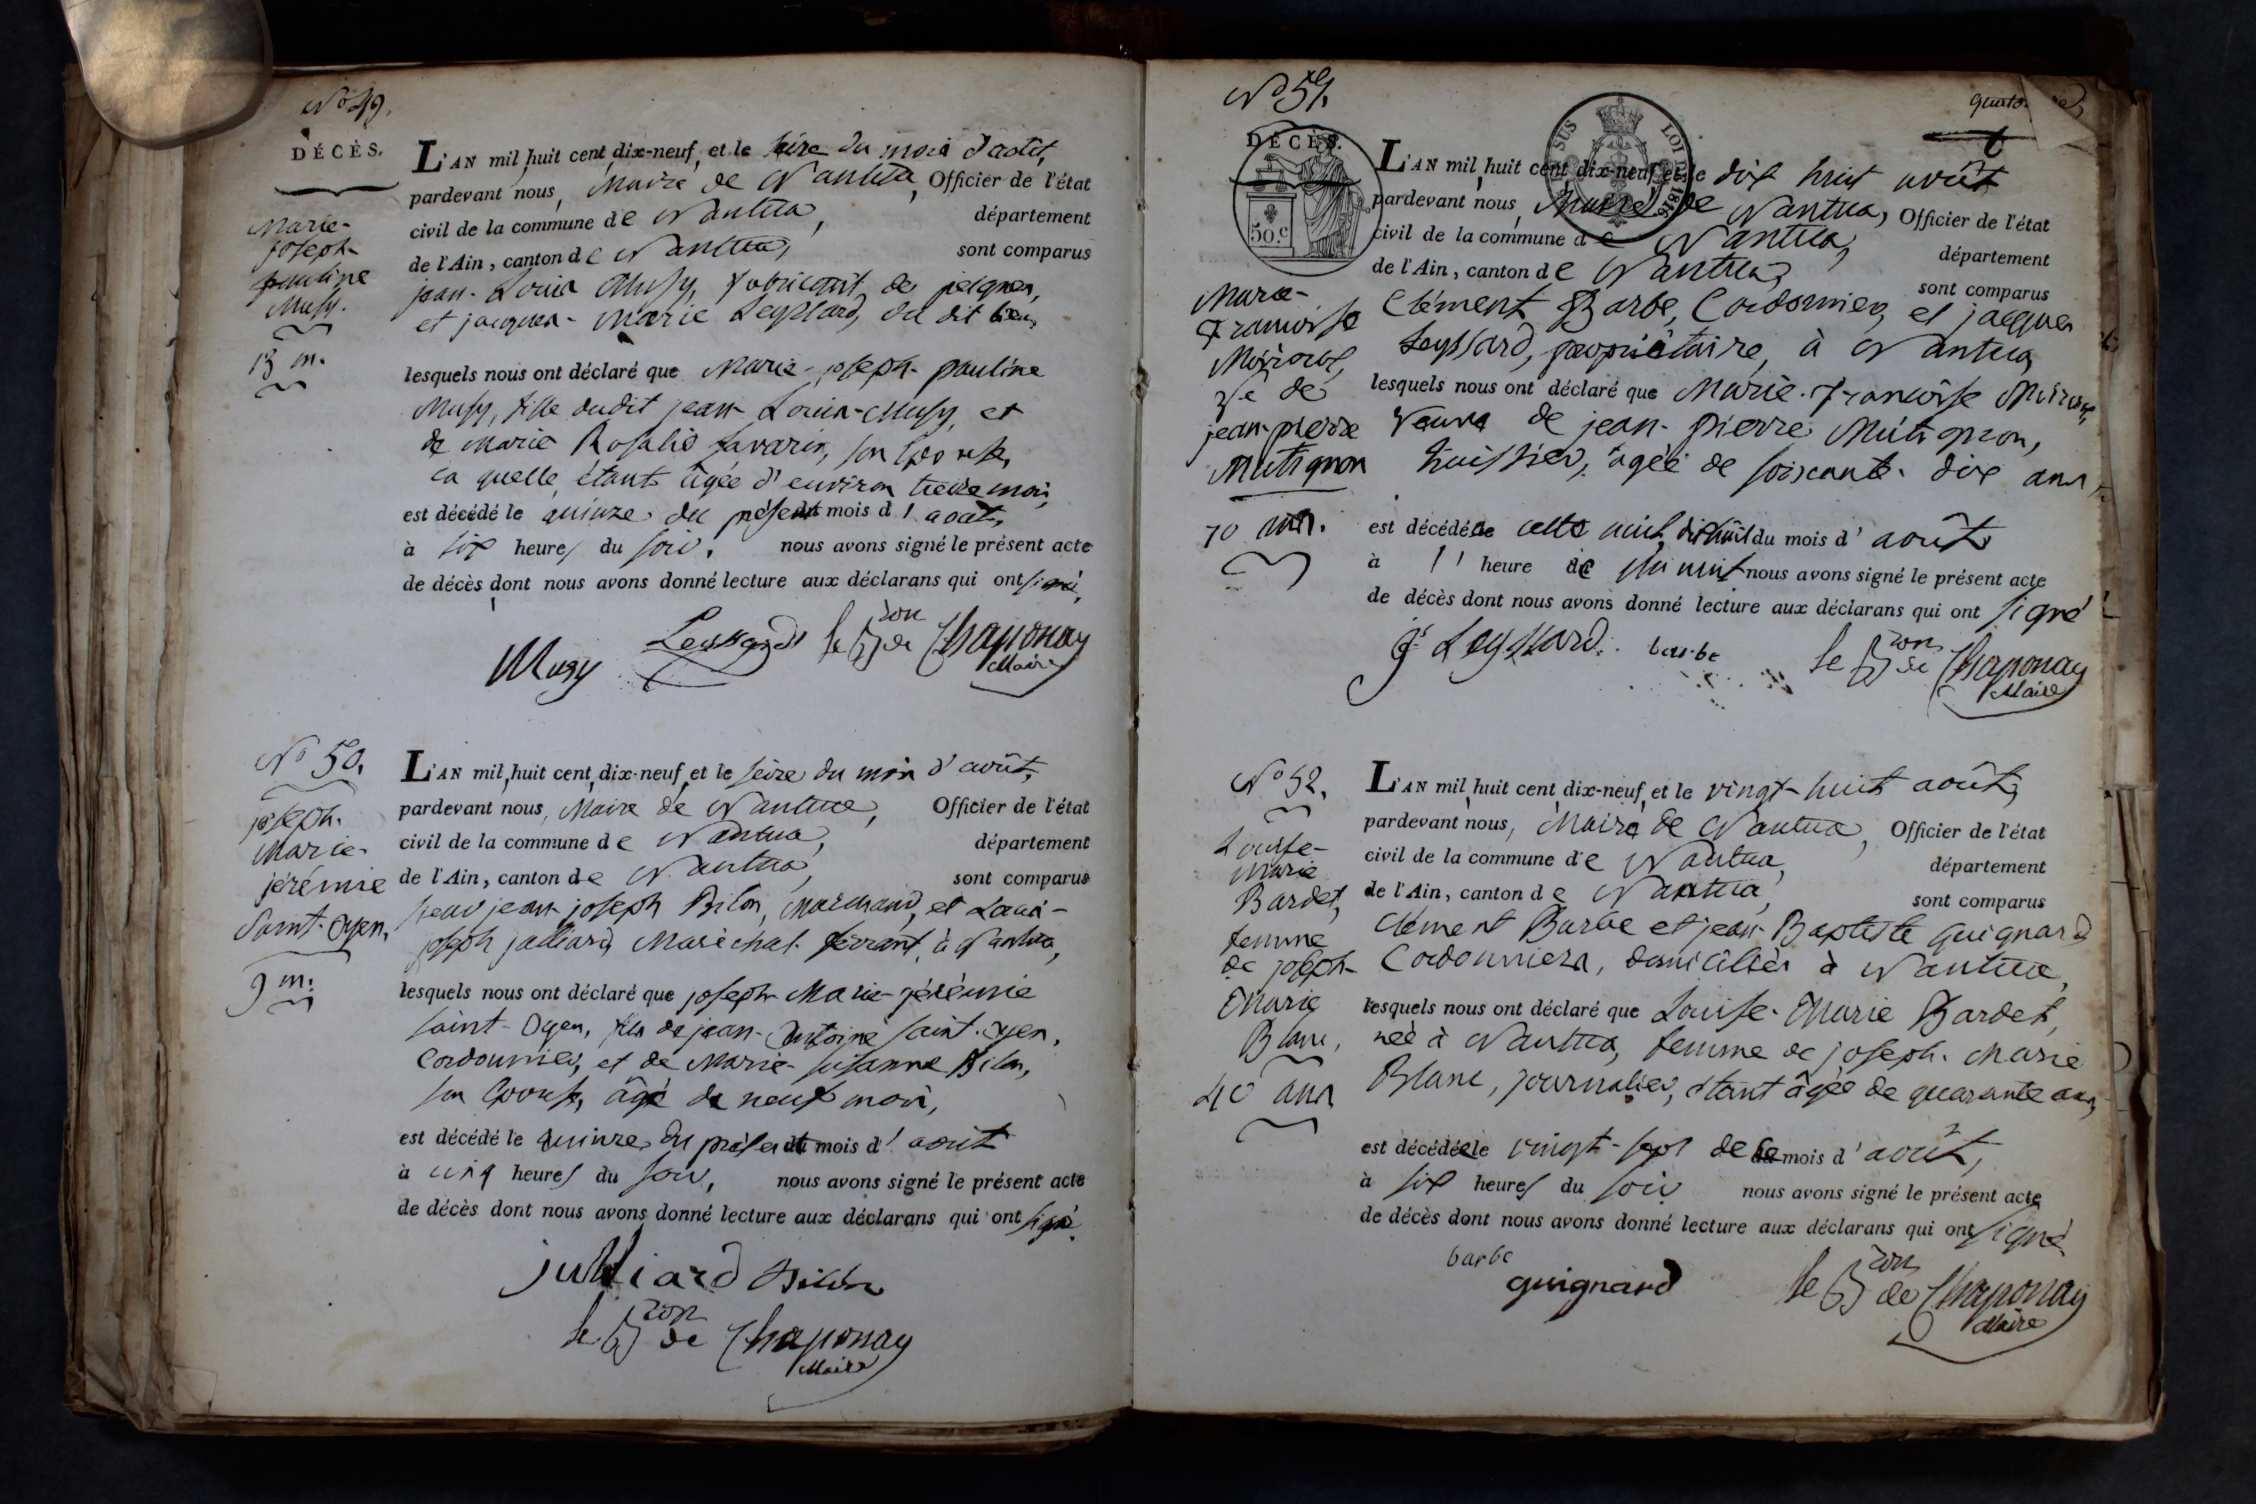 N° 49.
DÉCÈS.
Marie-
joseph-
pauline
Musy.
13 m.
L'AN mil huit cent dix-neuf, et le seize du mois d'août,
pardevant nous, Maire de Nantua, Officier de l'état
civil de la commune de Nantua, département
de l'Ain, canton de Nantua, sont comparus
jean-Louis Musy, fabricant de peignes,
et jacques-Marie Leyssard, du dit lieu,
lesquels nous ont déclaré que Marie-joseph-pauline
Musy, fille dudit jean-Louis-Musy, et
de Marie Rosalie Savarin, son Epouse,
la quelle étant âgée d'environ treize mois,
est décédé le quinze du présent du mois d'août,
à six heures du soir, nous avons signé le présent acte
de décès dont nous avons donné lecture aux déclarans qui ont signé,
Musy Leyssard le Bon de Chaponay
Maire
N° 50.
joseph-
Marie-
jérémie
Saint-oyen,
9 m.
L'AN mil huit cent dix-neuf, et le seize du mois d'août,
pardevant nous, Maire de Nantua, Officier de l'état
civil de la commune de Nantua, département
de l'Ain, canton de Nantua, sont comparus
sieur jean-joseph Bilon, Marchand, et Louis-
joseph julliard, Maréchal ferrant, à Nantua,
lesquels nous ont déclaré que joseph-Marie-jérémie
saint-Oyen, fils de jean-Antoine saint-oyen,
Cordonnier, et de Marie-susanne Bilon,
son Epouse, âgé de neuf mois,
est décédé le quinze du présent du mois d'août
à cinq heures du soir, nous avons signé le présent acte
de décès dont nous avons donné lecture aux déclarans qui ont signé.
julliard Bilon
le Bon de Chaponay
Maire
N° 51.
DÉCÈS.
50.c
SUS LOI DE 1816
Marie-
françoise
ve de
jean-pierre
Mutignon
70 ans.
L'AN mil huit cent dix-neuf, et le dix huit août
pardevant nous, Maire de Nantua, Officier de l'état
civil de la commune de Nantua, département
de l'Ain, canton de Nantua, sont comparus
Clément Barbe, Cordonnier, et jacques
Leyssard, propriétaire, à Nantua,
lesquels nous ont déclaré que Marie-françoise
veuve de jean-pierre Mutignon,
huissier, âgée de soixante-dix ans,
est décédée cette nuit, dix huit du mois d'août
à 11 heure de minuit nous avons signé le présent acte
de décès dont nous avons donné lecture aux déclarans qui ont signé
Leyssard barbe le Bon de Chaponay
Maire
N° 52.
Louise-
Marie
Bardet,
femme
de joseph-
Marie
Blanc,
40 ans
L'AN mil huit cent dix-neuf, et le vingt-huit août,
pardevant nous, Maire de Nantua, Officier de l'état
civil de la commune de Nantua, département
de l'Ain, canton de Nantua, sont comparus
Clément Barbe et jean-Baptiste guignard
Cordonniers, domiciliés à Nantua,
lesquels nous ont déclaré que Louise-Marie Bardet,
née à Nantua, femme de joseph-Marie
Blanc, journalier, étant âgée de quarante ans,
est décédée le vingt-sept de ce mois d'août,
à six heures du soir nous avons signé le présent acte
de décès dont nous avons donné lecture aux déclarans qui ont signé
barbe
guignard le Bon de Chaponay
Maire